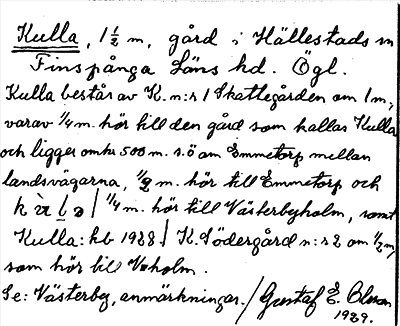 Kulla, 1 1/2 m, gård i Hällestads sn
Finspånga Läns hd. Ögl.
Kulla består av K. n:r 1 Skattegården om 1 m,
varav 1/4 m. hör till den gård som kallas Kulla
och ligger omkr 500 m. s.ö om Emmetorp mellan
landsvägarna, 1/2 m. hör till Emmetorp och
1/4 m. hör till Västerbyholm, samt
Kulla: kb 1928. K. Södergård n:r 2 om 1/2 m,
som hör till V-holm.
Se: Västerby, anmärkningar. / Gustaf E. Olsson
1929.